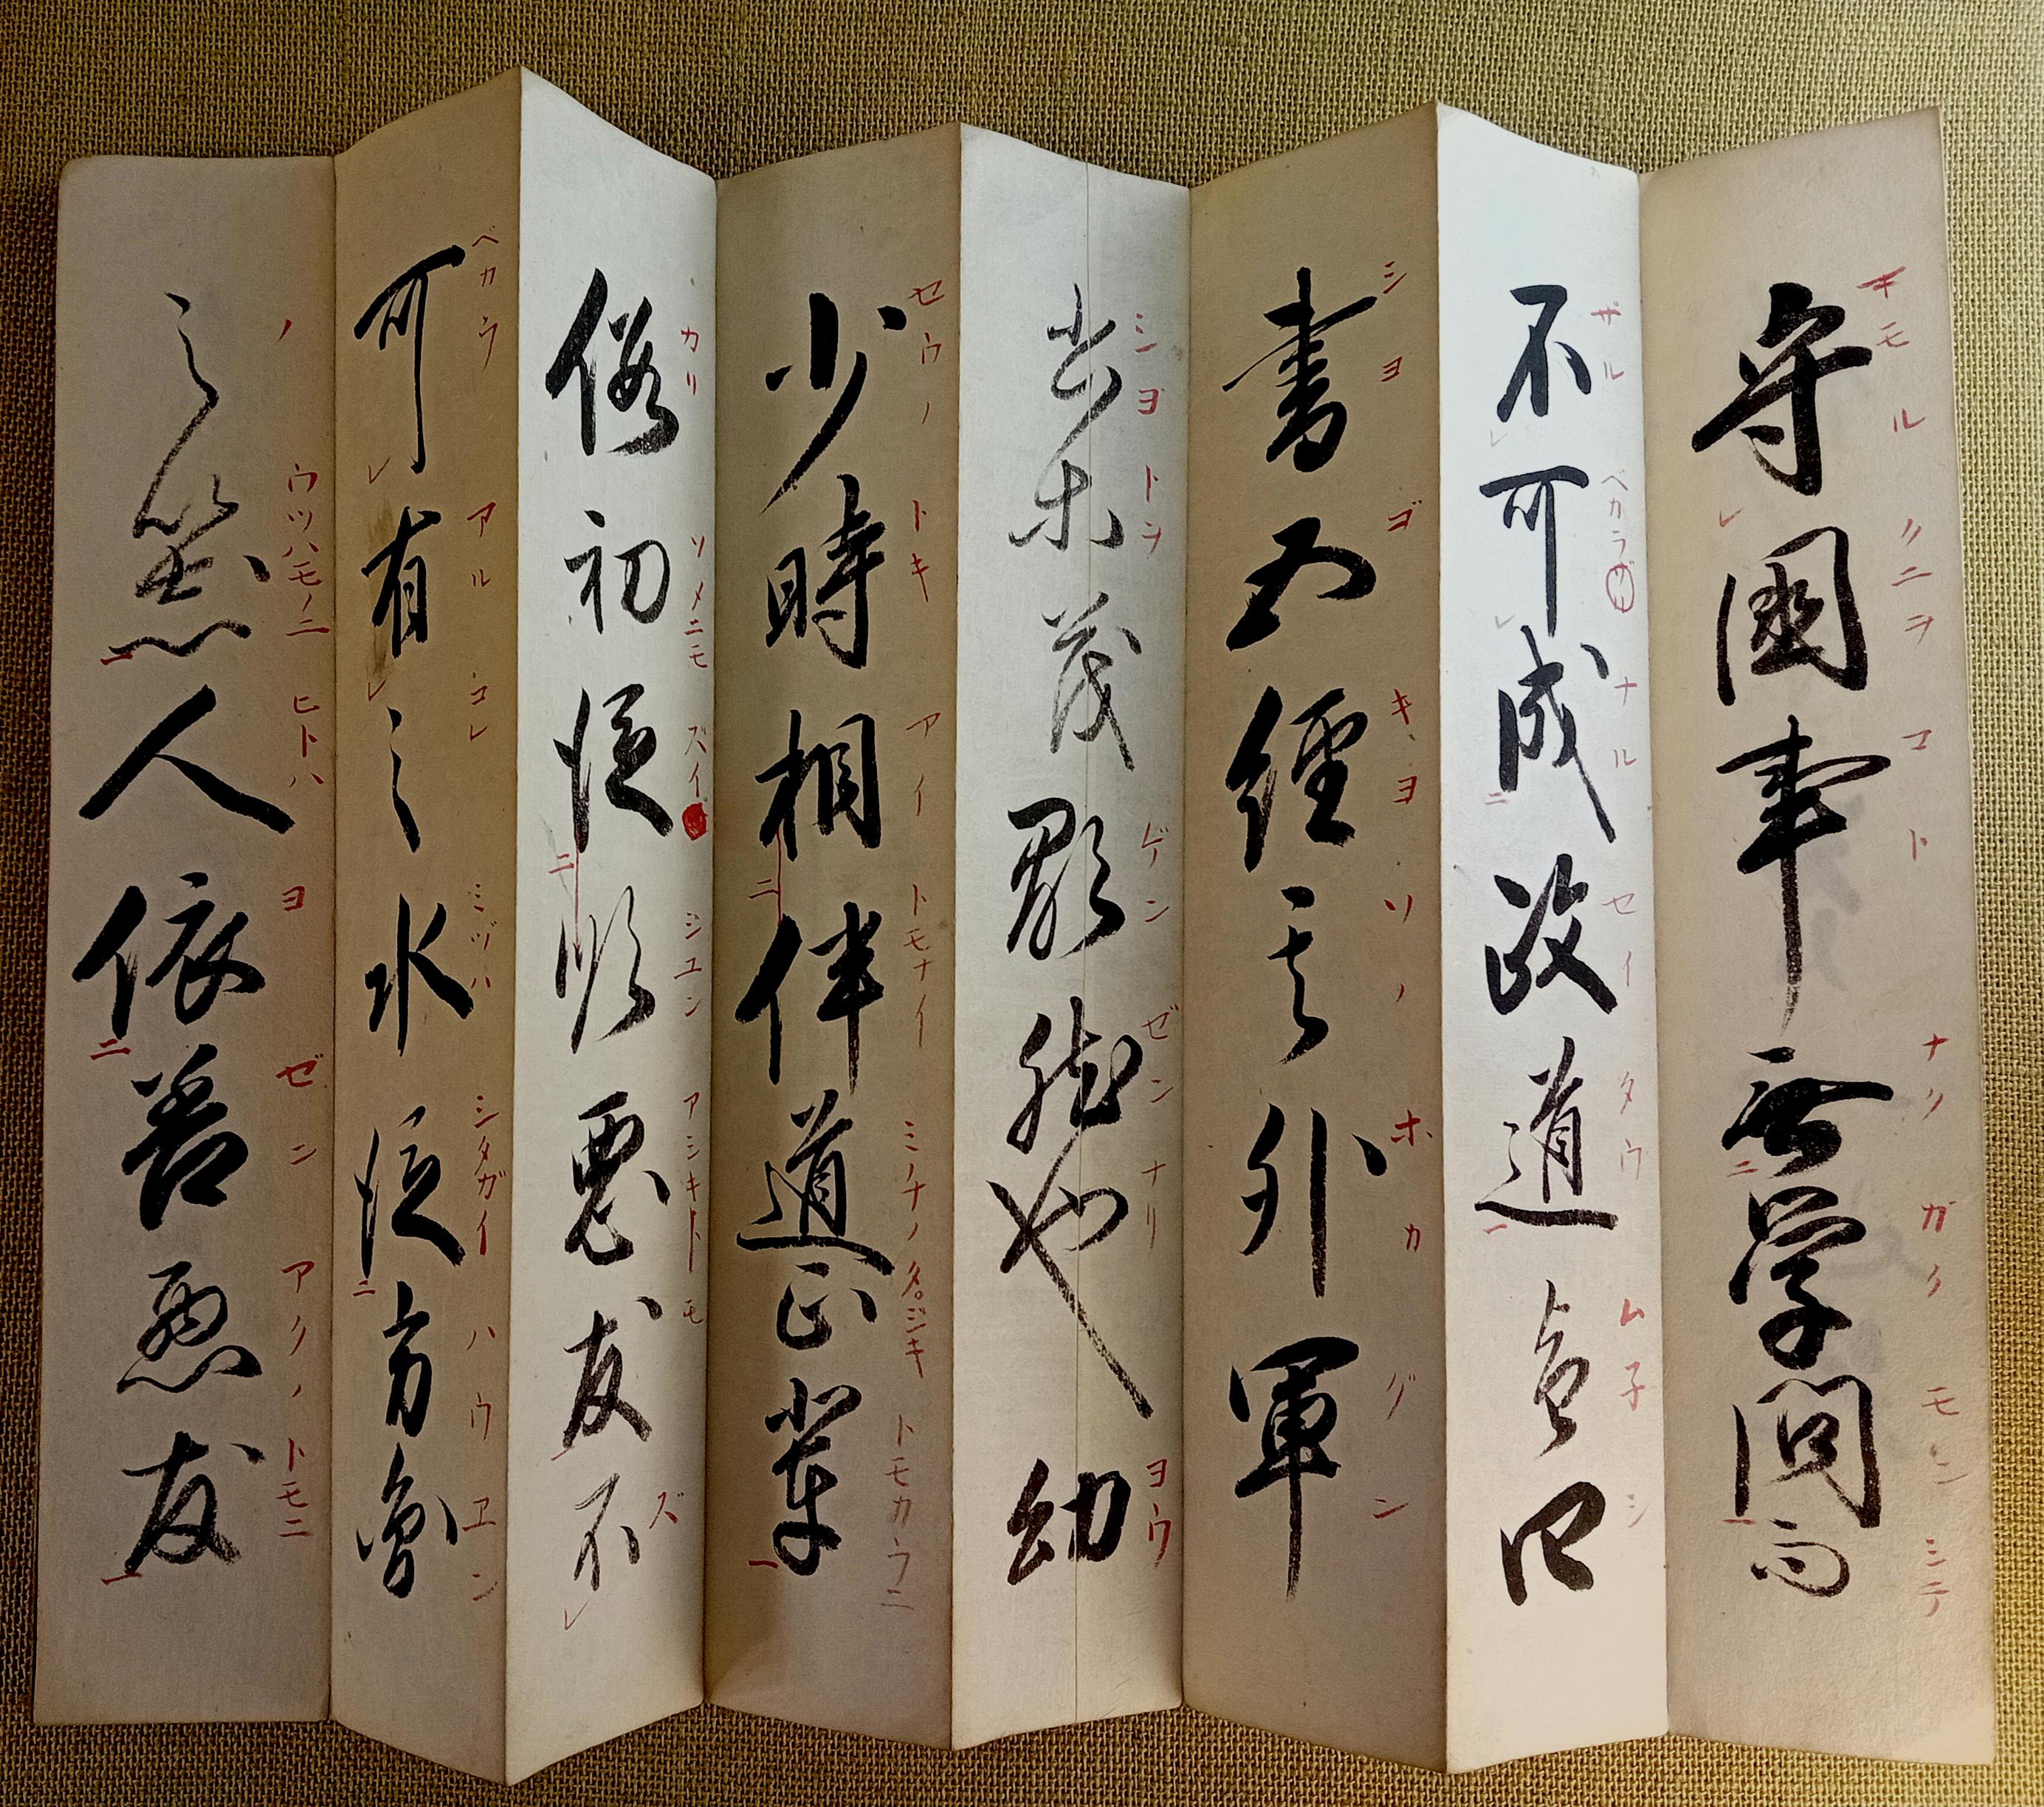 キモル クニヲ コト ナク ガク モン シテ
守國事無学問而
ザル ベカラ ナル セイ タウ ム子 シ
不可成政道旨四
シヨ ゴ キヨ ソノ ホカ グン
書五經其外軍
シヨ トナ ゲン ゼン ナリ ヨウ
書等茂顕然也幼
セウノ トキ アイ トモナイ ミチノ タヾシキ トモカラニ
少時相伴道正輩
カリ ソメニモ ズイ ジユン アシキ トモ ズ
假初從順悪友不
ベカウ アル コレ ミヅハ シタガイ ハウ エン
可有之水從方圓
ノ ウツハモノニ ヒトハ ヨ ゼン アクノ トモニ
之器人依善悪友